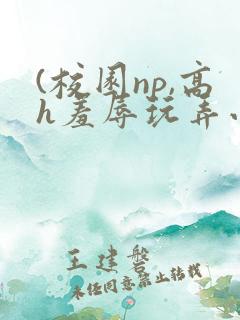 (校园np,高
h羞辱玩弄、
王建磐
未经同意禁止转载